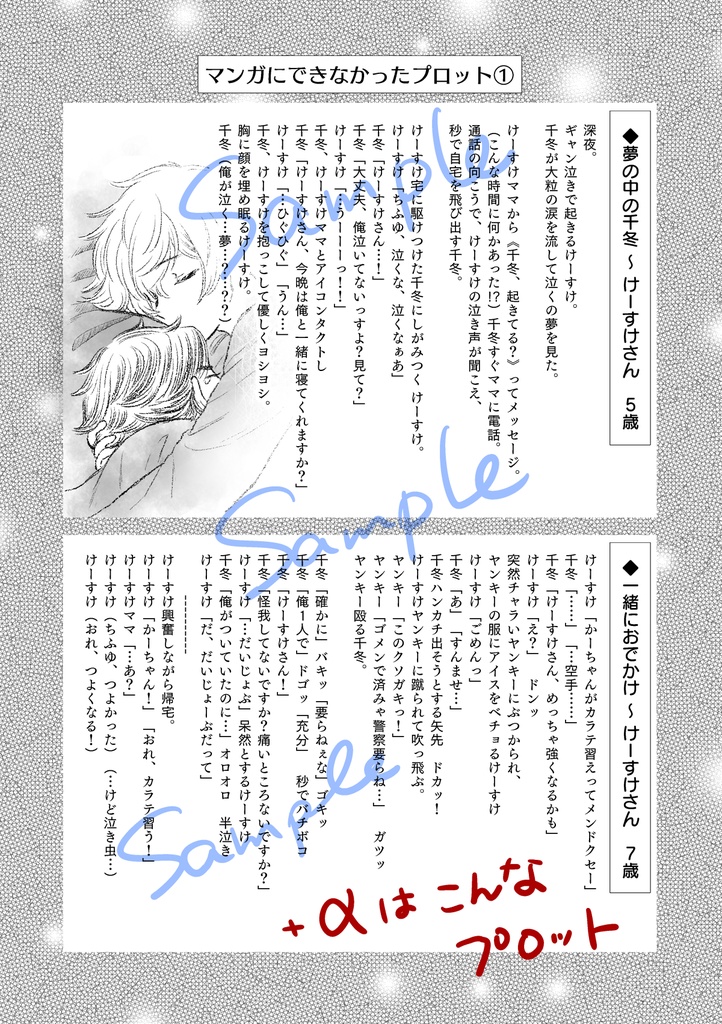 マンガにできなかったプロット①
◆夢の中の千冬 ～ けーすけさん　5歳
深夜。
ギャン泣きで起きるけーすけ。
千冬が大粒の涙を流して泣くの夢を見た。
けーすけママから《千冬、起きてる？》ってメッセージ。
（こんな時間に何かあった!?）千冬すぐママに電話。
通話の向こうで、けーすけの泣き声が聞こえ、
秒で自宅を飛び出す千冬。
けーすけ宅に駆けつけた千冬にしがみつくけーすけ。
けーすけ「ちふゆ、泣くな、泣くなぁあ」
千冬「けーすけさん…！」
千冬「大丈夫、俺泣いてないっすよ？見て？」
けーすけ「…うーーーっ！！」
千冬、けーすけママとアイコンタクトし
千冬「けーすけさん、今晩は俺と一緒に寝てくれますか？」
けーすけ「…ひぐひぐ」「うん…」
千冬、けーすけを抱っこして優しくヨシヨシ。
胸に顔を埋め眠るけーすけ。
千冬（俺が泣く…夢…？…？？）
◆一緒におでかけ ～ けーすけさん　7歳
けーすけ「かーちゃんがカラテ習えってメンドクセー」
千冬「……」「…空手……」
千冬「けーすけさん、めっちゃ強くなるかも」
けーすけ「え？」　ドンッ
突然チャラいヤンキーにぶつかられ、
ヤンキーの服にアイスをベチョるけーすけ
けーすけ「ごめんっ」
千冬「あ」「すんませ…」
千冬ハンカチ出そうとする矢先　ドカッ！
けーすけヤンキーに蹴られて吹っ飛ぶ。
ヤンキー「このクソガキっ！」
ヤンキー「ゴメンで済みゃ警察要らね…」　ガツッ
ヤンキー殴る千冬。
千冬「確かに」バキッ「要らねぇな」ゴキッ
千冬「俺1人で」ドゴッ「充分」　秒でバチボコ
千冬「けーすけさん！」
千冬「怪我してないですか？痛いところないですか？」
けーすけ「…だいじょぶ」呆然とするけーすけ
千冬「俺がついていたのに…」オロオロ　半泣き
けーすけ「だ、だいじょーぶだって」
----------
けーすけ興奮しながら帰宅。
けーすけ「かーちゃん！」「おれ、カラテ習う！」
けーすけママ「…あ？」
けーすけ（ちふゆ、つよかった）（…けど泣き虫…）
けーすけ（おれ、つよくなる！）
+αはこんな
プロット
Sample
Sample
Sample